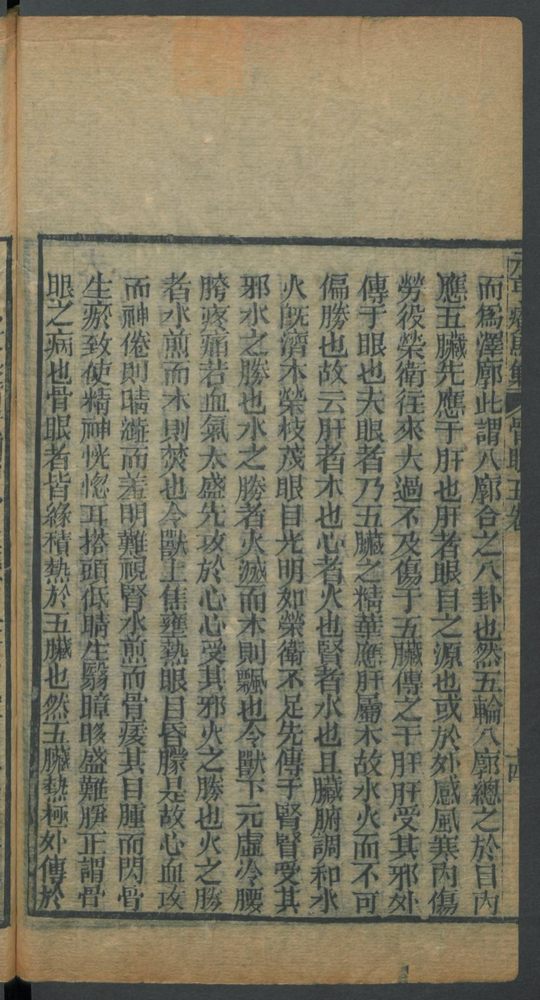 而為澤廓此謂八廓合之八卦也然五輪八廓總之於目内
應五臟先應于肝也肝者眼目之源也或於外感風寒内傷
勞役榮衛往來大過不及傷于五臟傳之于肝肝受其邪外
傳于眼也夫眼者乃五臟之精華應肝屬木故水火而不可
偏勝也故云肝者木也心者火也腎者水也且臟腑調和水
火既濟木榮枝茂眼目光明如榮衛不足先傳于腎腎受其
邪水之勝也水之勝者火滅而木則飄也令獸下元虛冷腰
胯疼痛若血氣太盛先攻於心心受其邪火之勝也火之勝
者水煎而木則焚也令獸上焦壅熱眼目昏朦是故心血攻
而神倦則睛澁而羞明難視腎水煎而骨痿其目腫而閃骨
生瘀致使精神恍惚耳搭頭低睛生翳瞕眵盛難睜正謂骨
眼之病也骨眼者皆緣積熱於五臟也然五臟熱極外傳於
骨眼五卷
十四